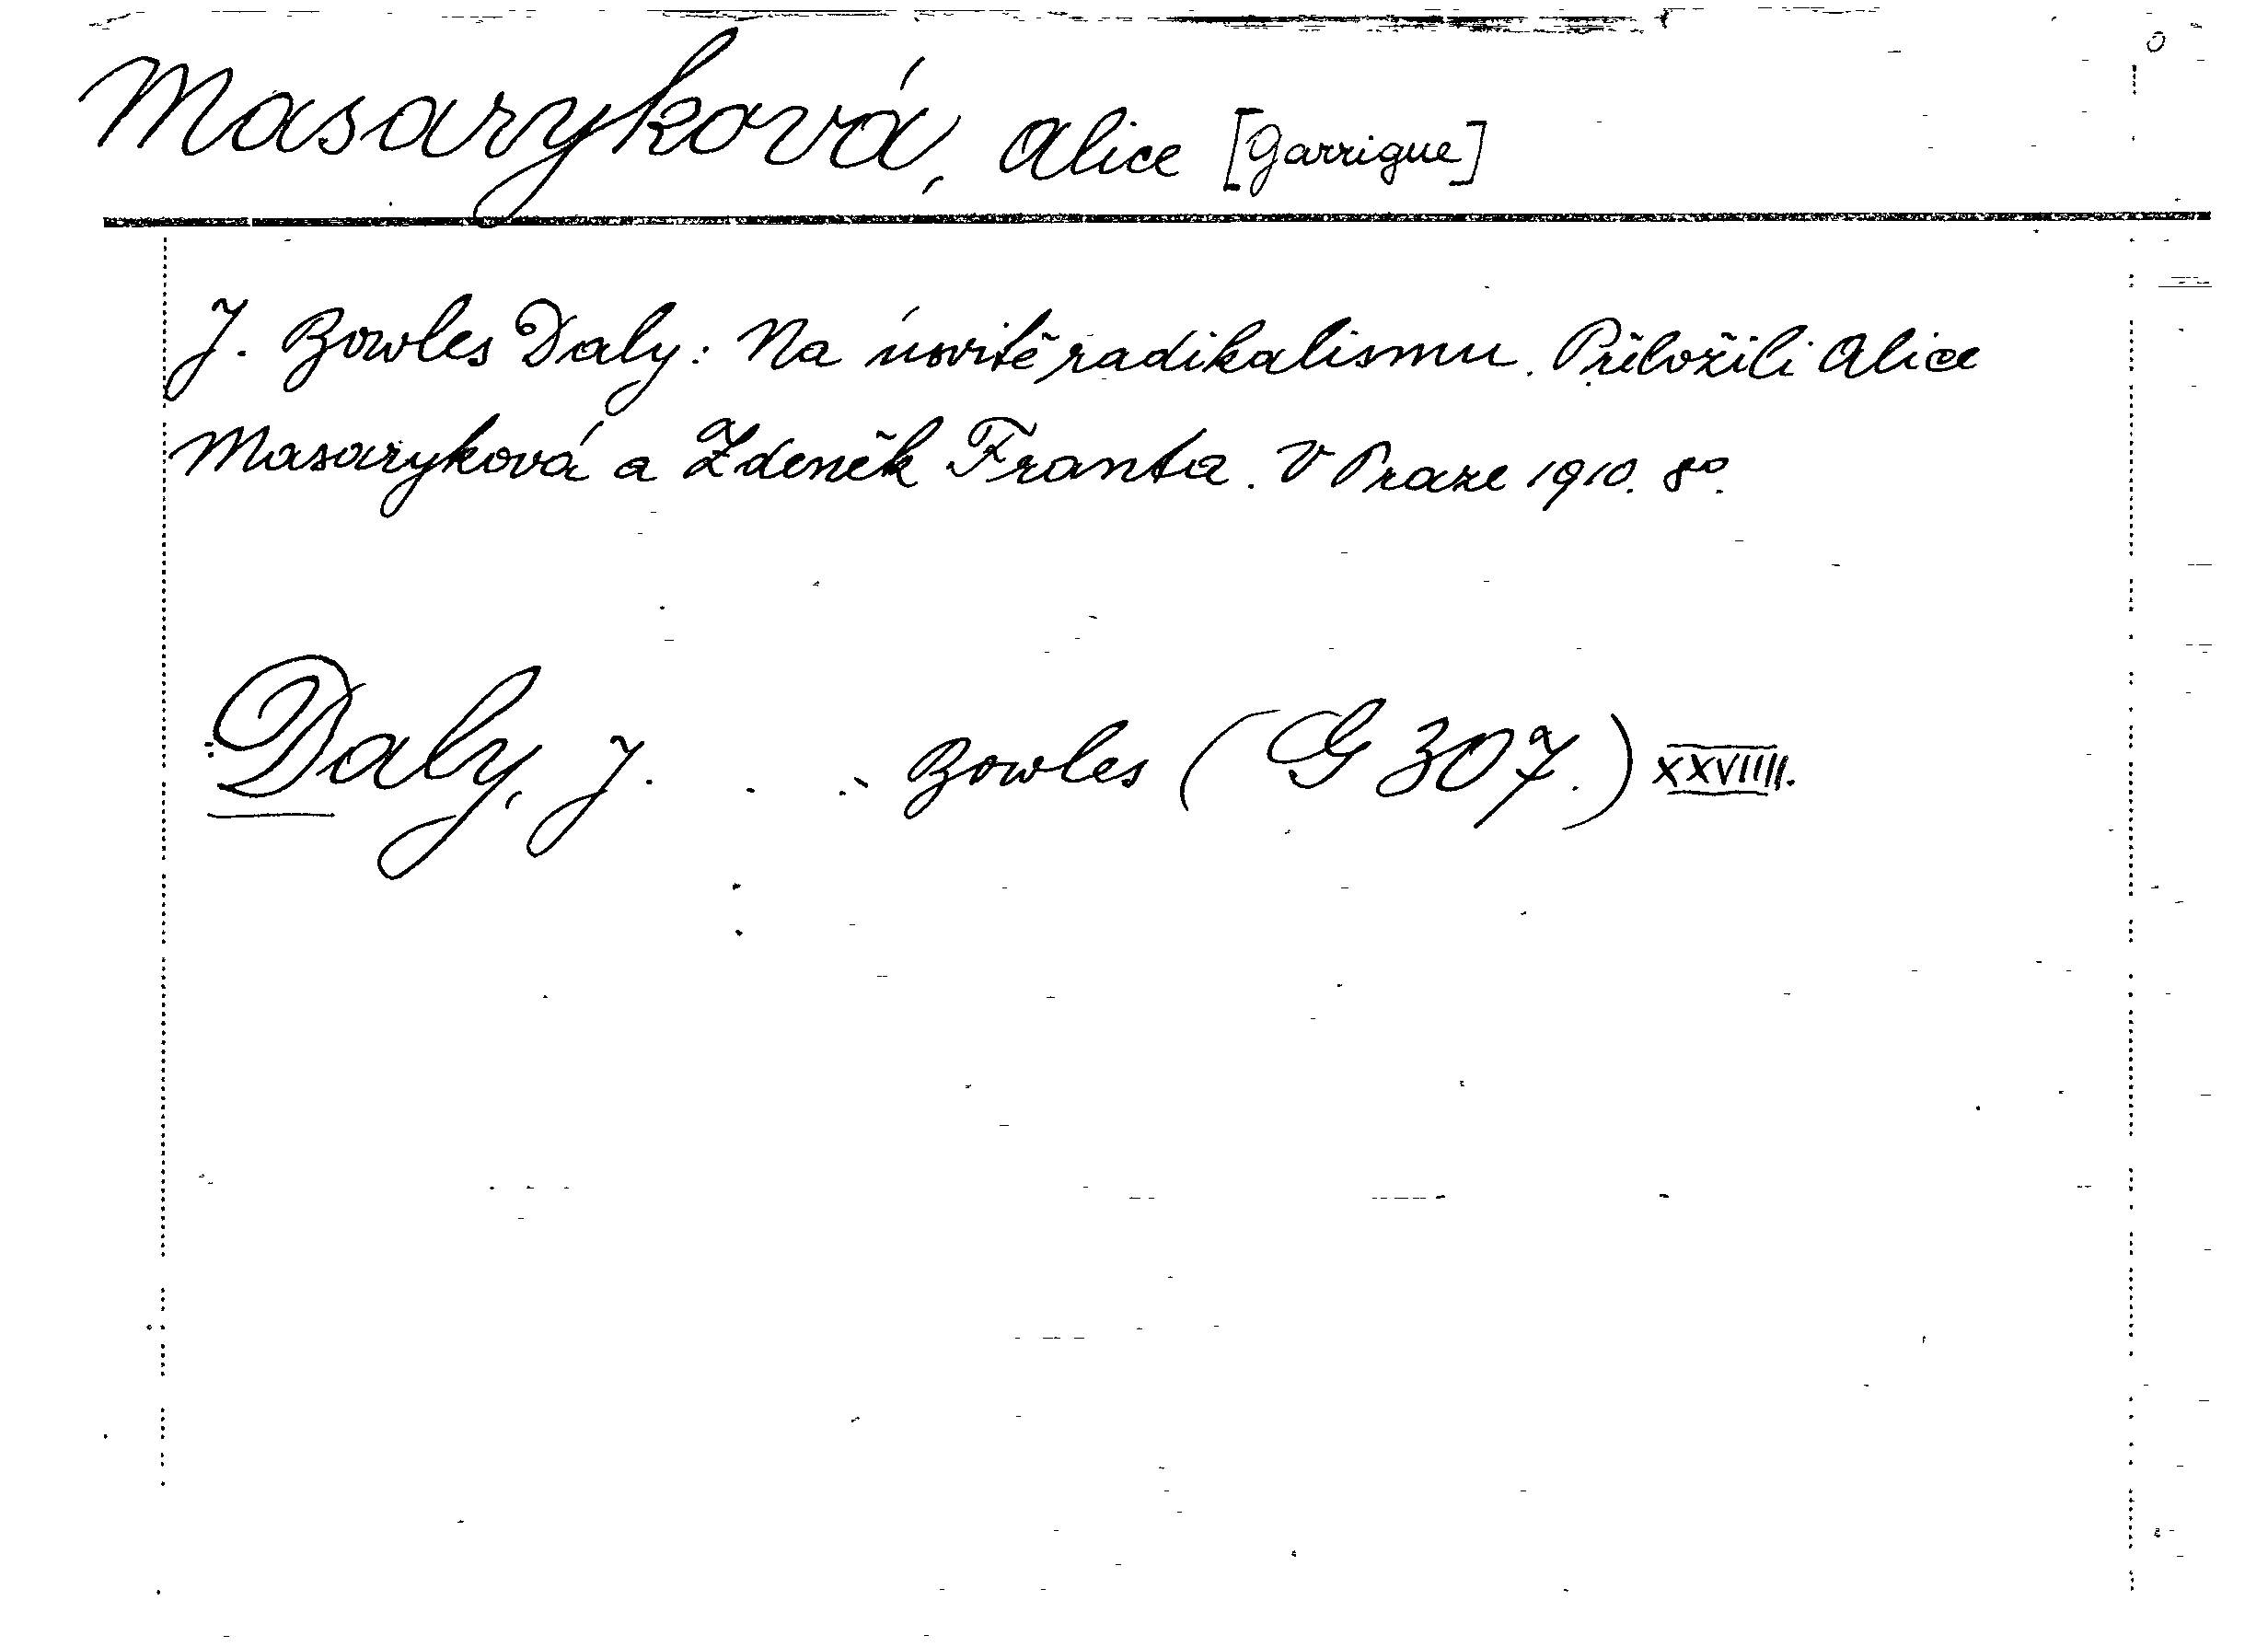 Masaryková, Alice [Garrigue]
J. Bowles Daly: Na úsvitě radikalismu. Přeložili Alice
Masaryková a Zdeněk Franta. V Praze 1910. 8°.
Daly, J. Bowles (G 307.) XXVIIII.